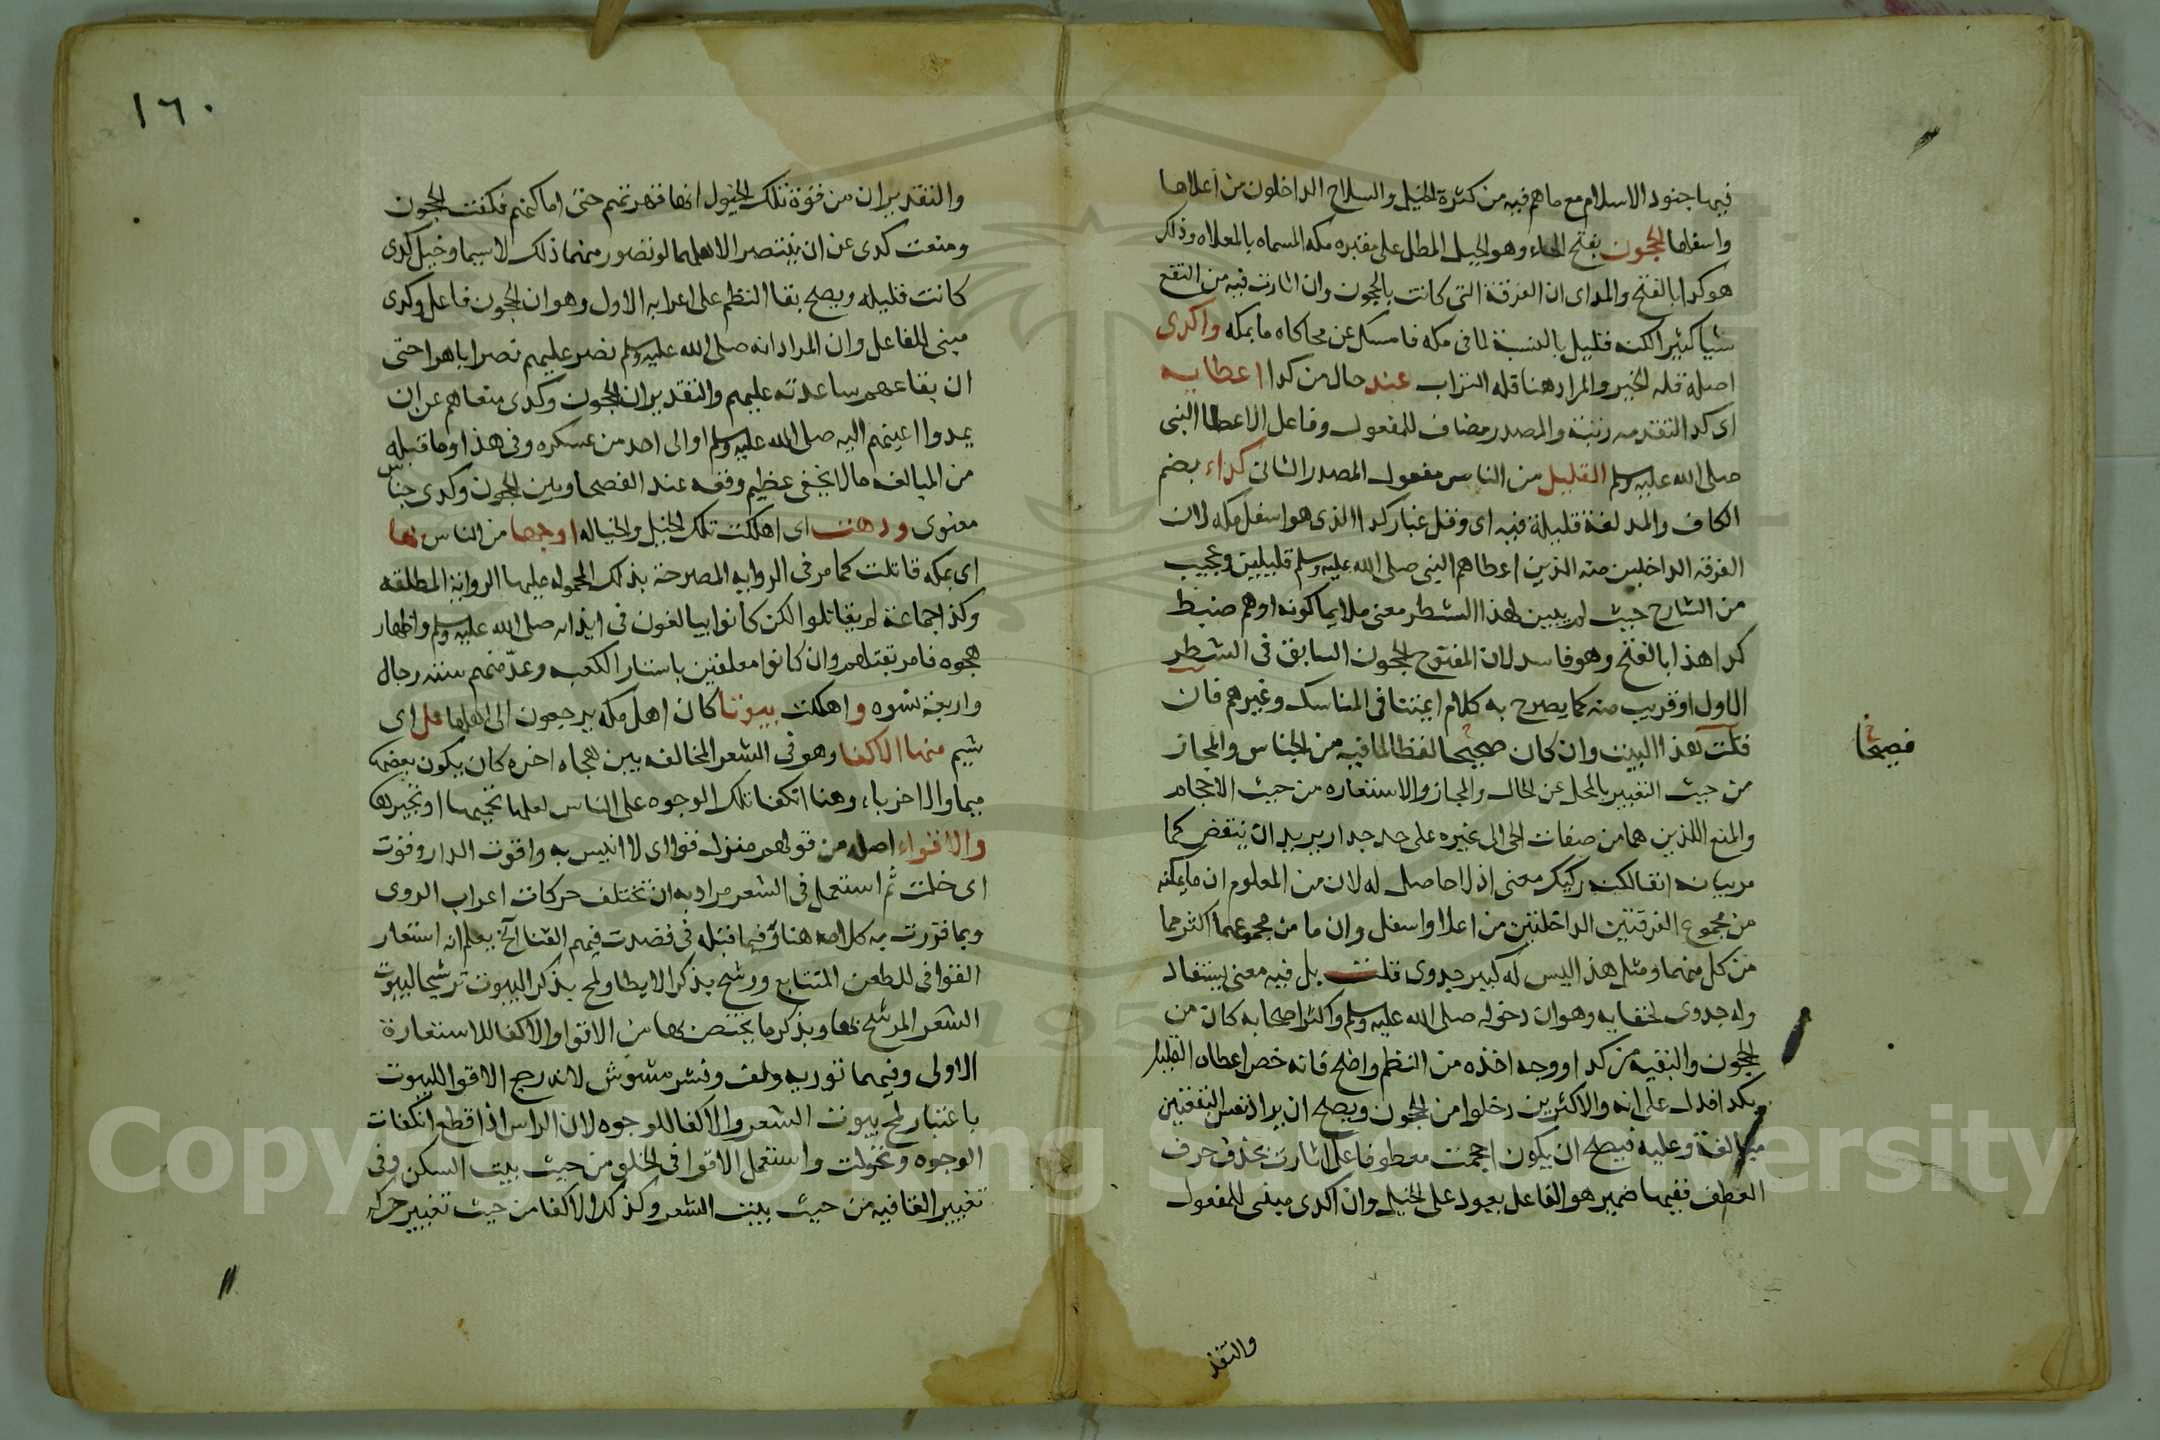 فيها جنود الاسلام مع ما هم فيه من كثرة الخيل والسلاح الداخلون من أعلاها
واسفلها الحجون بفتح الحاء وهو الجبل المطل على مقبره مكه المسماه بالمعلاه وذلك
هو كدا بالفتح والمد اى ان الفرقة التى كانت بالحجون وان اثارت فيه من النقع
شيا كثيرا لكنه قليل بالنسبة لما فى مكه فامسك عن محاكاه ما بمكه واكدى
اصله قله الخير والمراد هنا قله التراب عند حال من كدا اعطايه
اى كدا المتقدمه رتبة والمصدر مضاف للمفعول وفاعل الاعطا النبى
صلى الله عليه وسلم القليل من الناس مفعول المصدر الثانى كداء بضم
الكاف والمد لغة قليلة فيه اى وقل غبار كدا الذى هو اسفل مكه لان
الفرقه الداخلين منه الذين اعطاهم النبى صلى الله عليه وسلم قليلين وعجيب
من الشارح حيث لم يبين لهذا الشطر معنى ملايما كونه اوهم ضبط
كدا هذا بالفتح وهو فاسد لان المفتوح الحجون السابق فى الشطر
الاول او قريب منه كما يصرح به كلام ايمتنا فى المناسك وغيرهم فان
قلت هذا البيت وان كان صحيحا لفظا لما فيه من الجناس والمجاز
فصيحا خ
من حيث التعبير بالمحل عن الحال والمجاز والاستعاره من حيث الاحجام
والمنع اللذين هما من صفات الحى الى غيره على حد جدار يريد ان ينقض كما
مر بيانه انفا لكنه ركيك معنى اذ لا حاصل له لان من المعلوم ان ما بمكه
من مجموع الفرقتين الداخلتين من اعلا واسفل وان ما من مجموعهما اكثر مما
من كل منهما ومثل هذا ليس له كبير جدوى قلت بل فيه معنى يستفاد
وله جدوى لخفايه وهو ان دخوله صلى الله عليه وسلم واكثر اصحابه كان من
الحجون والبقيه من كدا ووجه اخذه من النظم واضح فانه خص اعطاه القليل
بكدا فدل على انه والاكثرين دخلوا من الحجون ويصح ان يراد نفس البقعتين
مبالغة وعليه فيصح ان يكون احجمت معطوفا على اثارت بحذف حرف
العطف ففيها ضمير هو الفاعل يعود على الخيل وان اكدى مبنى للمفعول
والتقد
١٦٠
والتقدير ان من قوة تلك الخيول انها قهرتهم حتى اماكنهم فكفت الحجون
ومنعت كدى عن ان ينتصر الاهلهما لو تصور منهما ذلك لاسيما وخيل كدى
كانت قليله ويصح بقا النظم على اعرابه الاول وهو ان الحجون فاعل وكدى
مبنى للفاعل وان المراد انه صلى الله عليه وسلم نصر عليهم نصرا باهرا حتى
ان بقاعهم ساعدته عليهم والتقدير ان الحجون وكدى منعاهم عن ان
يمدوا اعينهم اليه صلى الله عليه وسلم او الى احد من عسكره وفى هذا وما قبله
من المبالغه ما لا يخفى عظيم وقعه عند الفصحا وبين الحجون وكدى جناس
معنوى ودهت اى اهلكت تلك الخيل والخياله اوجها من الناس بها
اى بمكه قاتلت كما مر فى الروايه المصرحة بذلك المحموله عليها الرواية المطلقه
وكذا جماعة لم يقاتلوا لكن كانوا يبالغون فى ايذائه صلى الله عليه وسلم واظهار
هجوه فامر بقتلهم وان كانوا معلقين باستار الكعبه وعدّ منهم ستته رجال
واربعة نسوه واهلكت بيوتا كان اهل مكه يرجعون الى اهلها مل اى
سيم منها الاكفا وهو فى الشعر المخالفه بين هجاء اخره كان يكون بعضها
ميما والاخر باء وهنا انكفا تلك الوجوه على الناس لعلها تحميها او تجيرها
والاقواء اصله من قولهم منزل قوا اى لا انيس به واقوت الدار وقوت
اى خلت ثم استعمل فى الشعر مرادا به ان تختلف حركات اعراب الروى
وبما قررت به كلامه هنا وفيما قبله فى قصدت فيهم القنا الخ يعلم انه استعار
القوافى للطعن المتتابع ورشح بذكر الايطا ولمح بذكر البيوت ترشيحا لبيوت
الشعر المرشح بها وبذكر ما يختص بها من الاقوا والاكفا للاستعارة
الاولى وفيهما توريه ولف ونشر مشوش لاندرج الاقوا لبيوت
باعتبار لمح بيوت الشعر والاكفا للوجوه لان الراس اذا قطع انكفات
الوجوه وتحولت واستعمل الاقوا فى الخلو من حيث بيت السكن وفى
تغيير القافيه من حيث بيت الشعر وكذلك الاكفا من حيث تغيير حركه
Copyright © King Saud University
1957